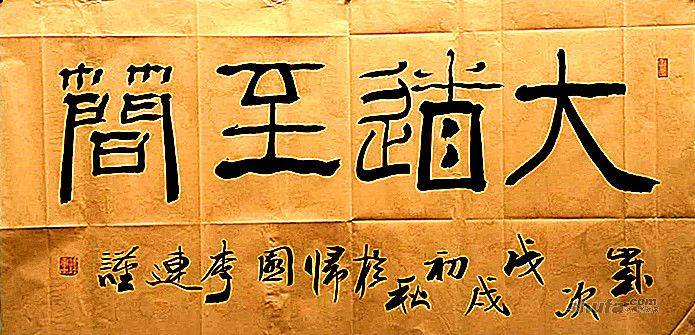 大道至簡
歲次戊戌初秋於歸園李連謹